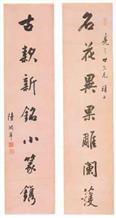 名花異果雕闌護
古款新銘小篆鐫